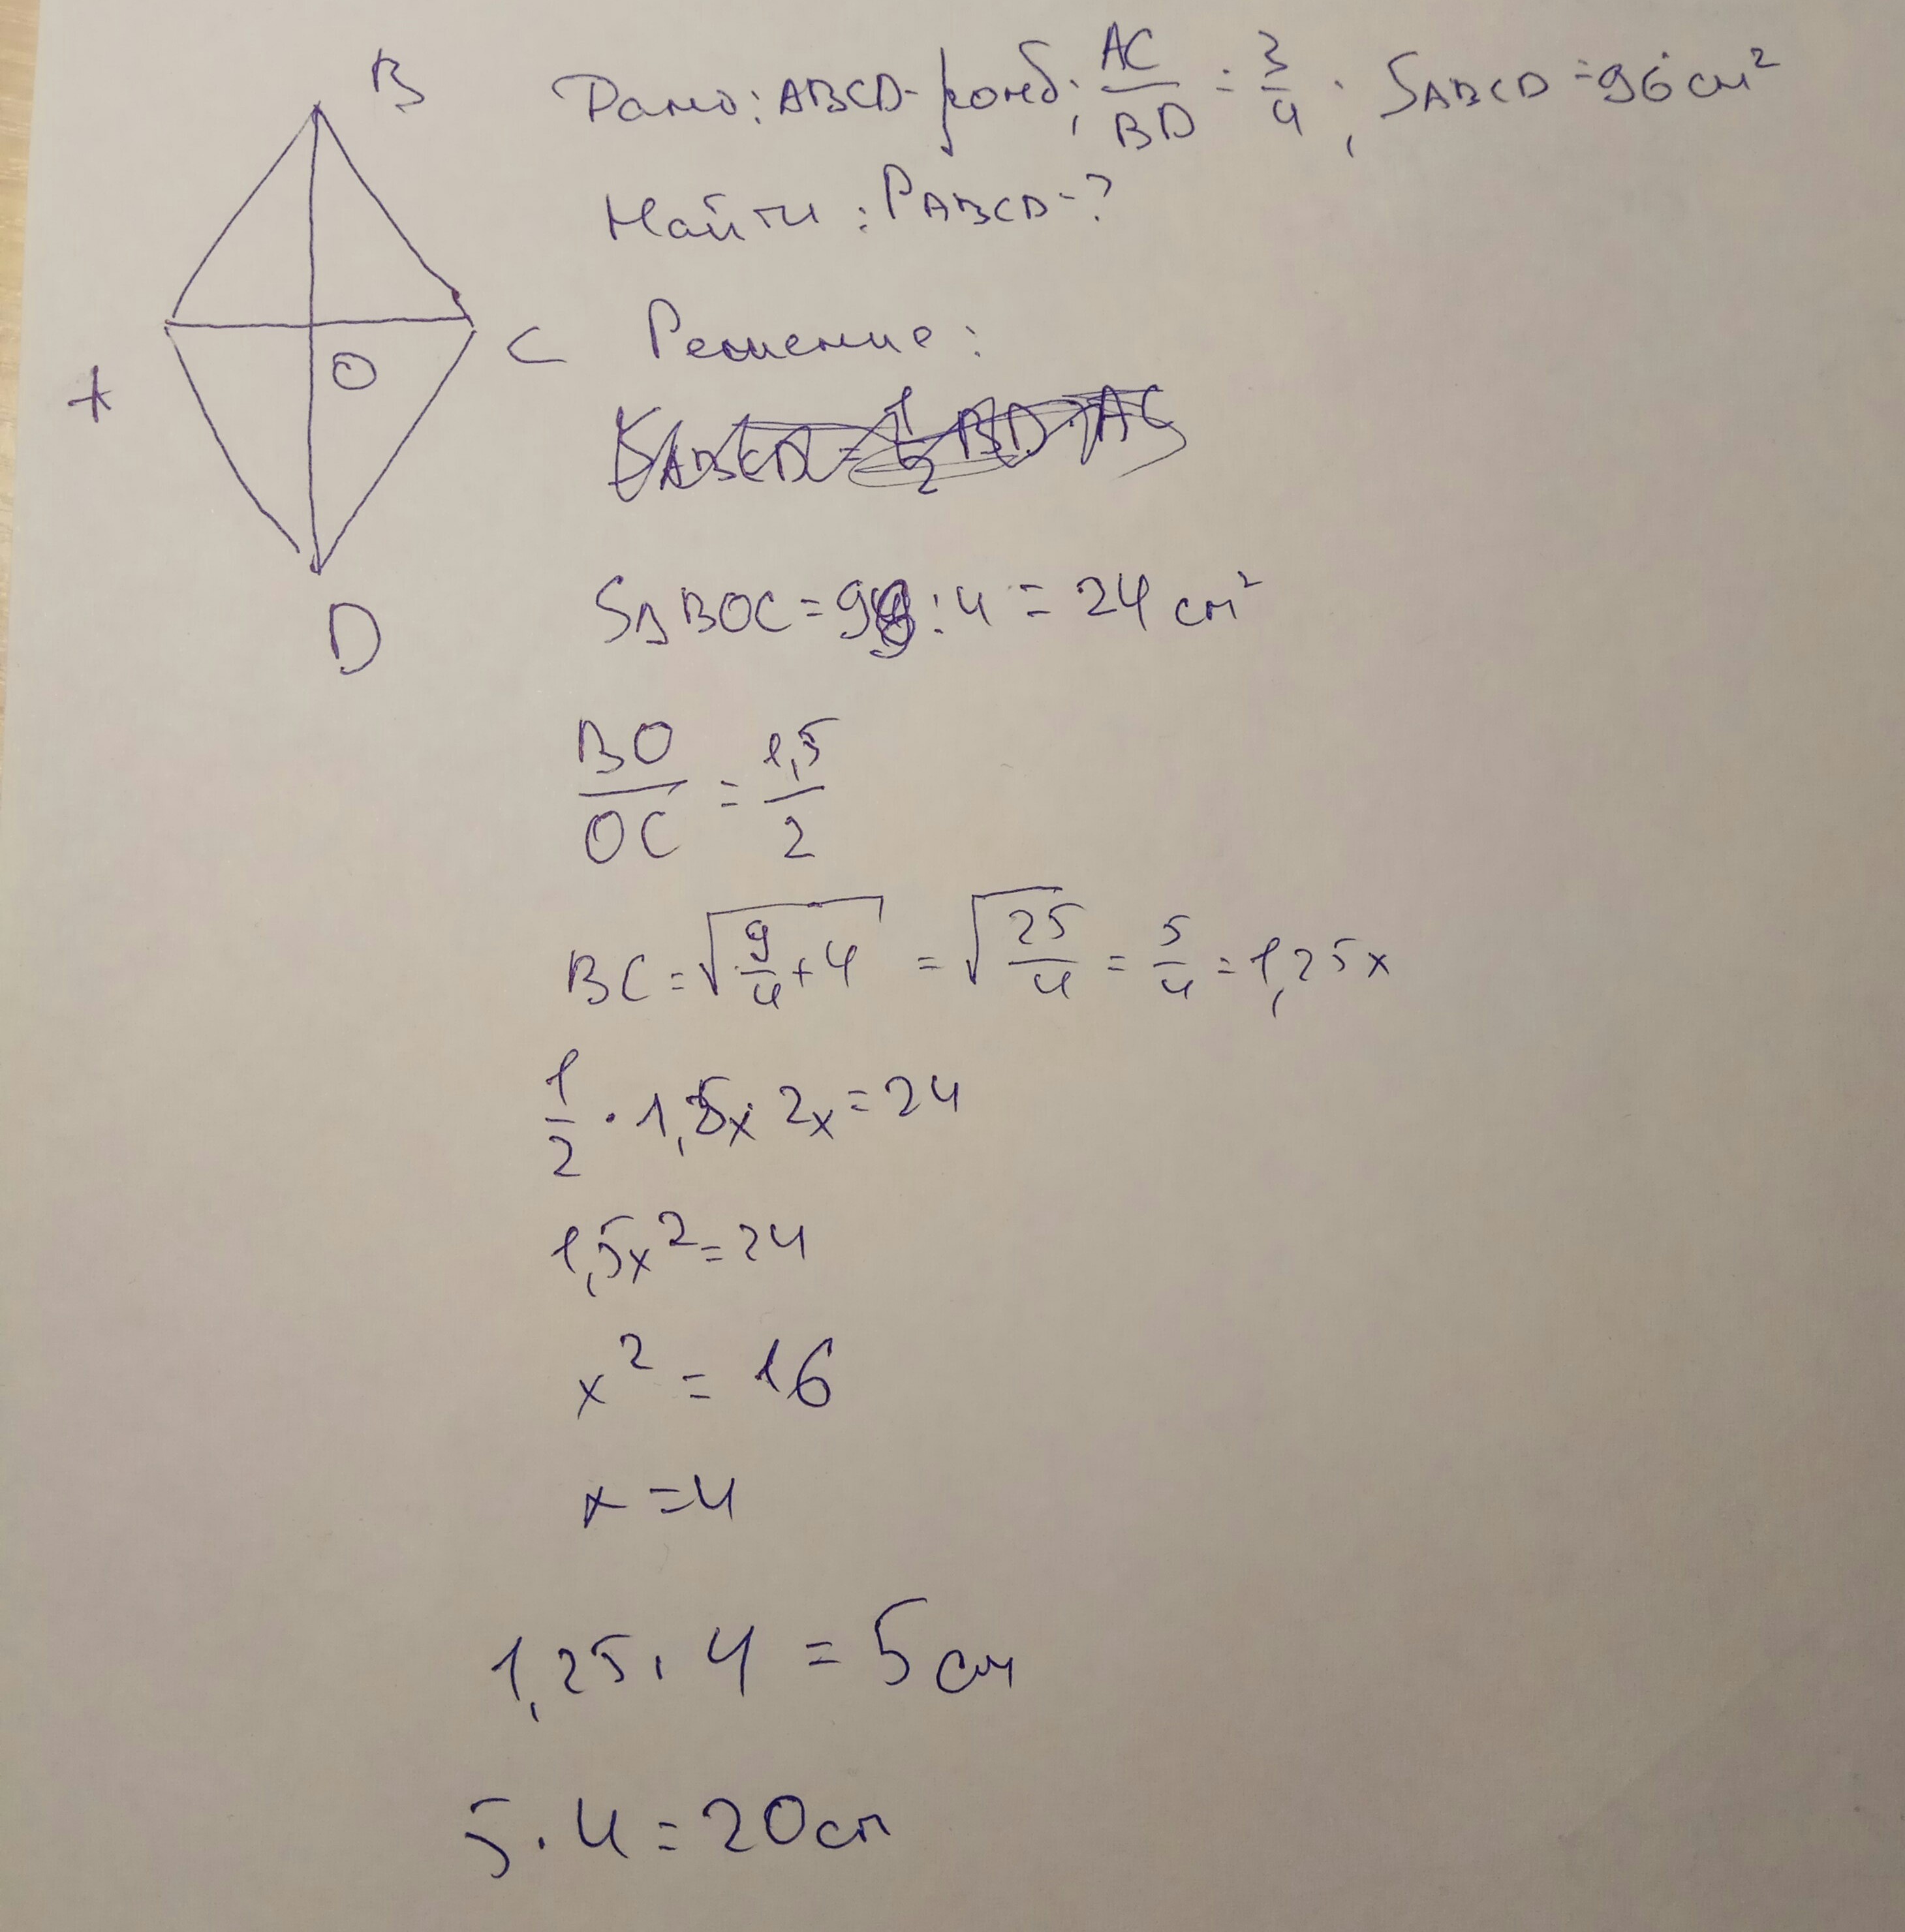 B
Дано: ABCD-ромб; AC/BD = 3/4; SABCD = 96 см²
Найти: PABCD-?
A
O
C
D
Решение:
SABCD = 1/2 BD · AC
SΔBOC = 96 : 4 = 24 см²
BO/OC = 1,5/2
BC = √(9/4 + 4) = √(25/4) = 5/4 = 1,25x
1/2 · 1,5x · 2x = 24
1,5x² = 24
x² = 16
x = 4
1,25 · 4 = 5 см
5 · 4 = 20 см